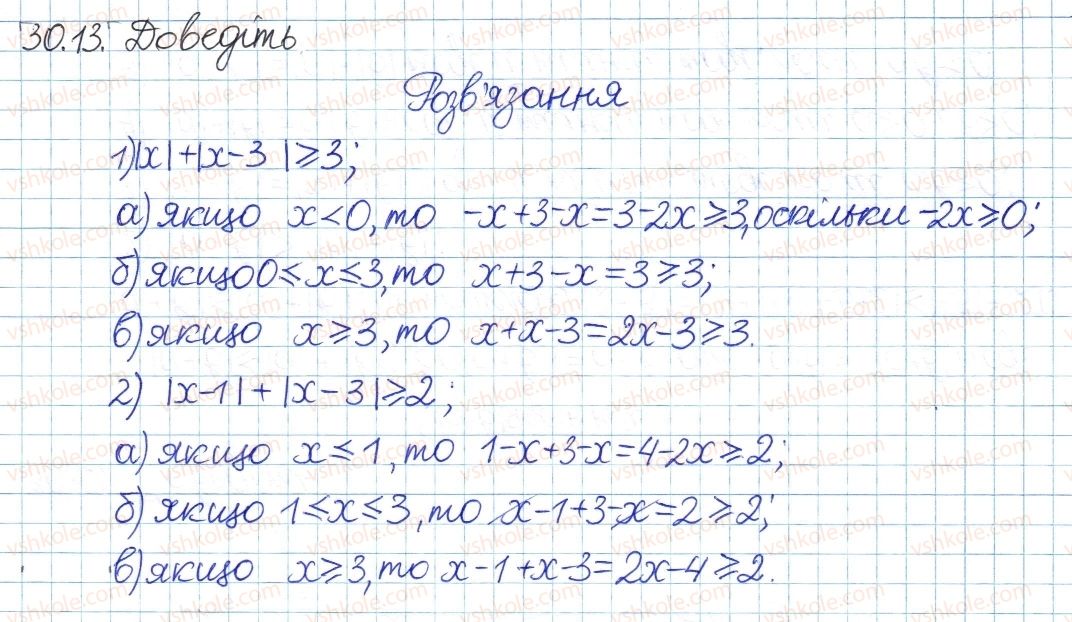 30.13. Доведіть
Розв'язання
1) |x|+|x-3|≥3;
а) якщо x<0, то -x+3-x=3-2x≥3, оскільки -2x≥0;
б) якщо 0≤x≤3, то x+3-x=3≥3;
в) якщо x≥3, то x+x-3=2x-3≥3.
2) |x-1|+|x-3|≥2;
а) якщо x≤1, то 1-x+3-x=4-2x≥2;
б) якщо 1≤x≤3, то x-1+3-x=2≥2;
в) якщо x≥3, то x-1+x-3=2x-4≥2.